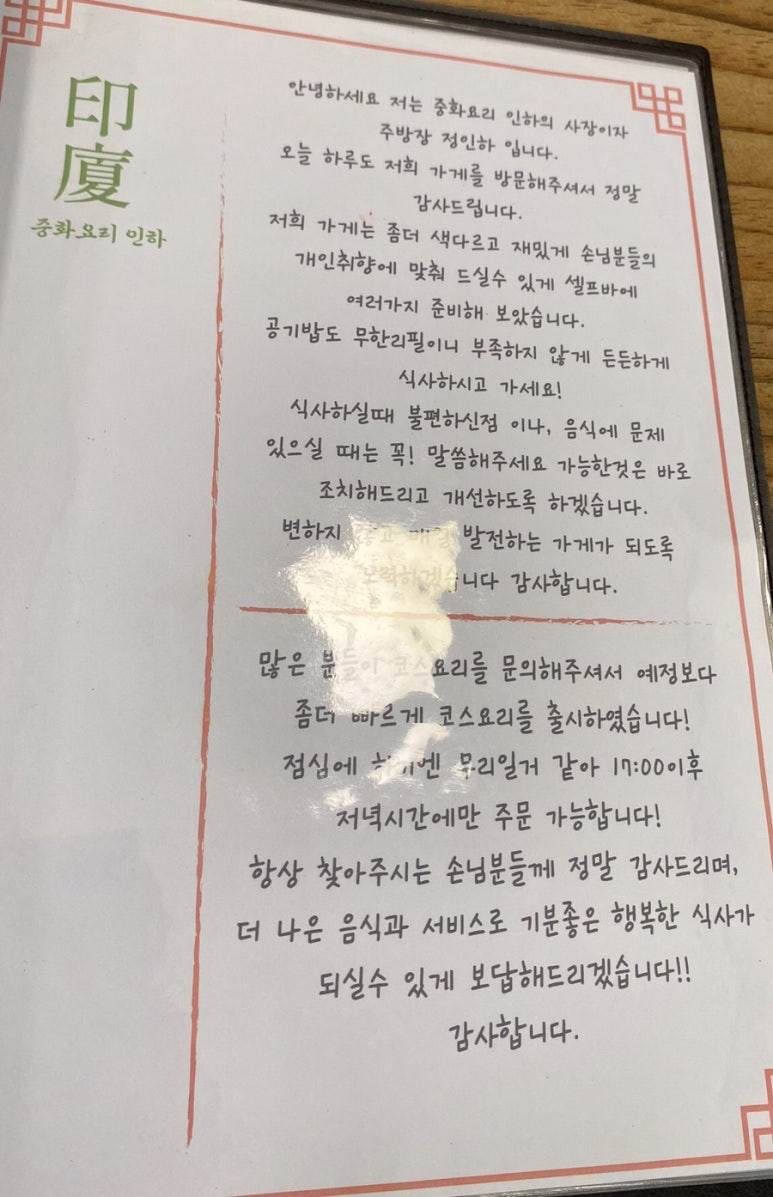 印
廈
중화요리 인하
안녕하세요 저는 중화요리 인하의 사장이자
주방장 정인하 입니다.
오늘 하루도 저희 가게를 방문해주셔서 정말
감사드립니다.
저희 가게는 좀더 색다르고 재밌게 손님분들의
개인취향에 맞춰 드실수 있게 셀프바에
여러가지 준비해 보았습니다.
공기밥도 무한리필이니 부족하지 않게 든든하게
식사하시고 가세요!
식사하실때 불편하신점 이나, 음식에 문제
있으실 때는 꼭! 말씀해주세요 가능한것은 바로
조치해드리고 개선하도록 하겠습니다.
변하지 않고 매일 발전하는 가게가 되도록
노력하겠습니다 감사합니다.
많은 분들이 코스요리를 문의해주셔서 예정보다
좀더 빠르게 코스요리를 출시하였습니다!
점심에 무리일거 같아 17:00이후
저녁시간에만 주문 가능합니다!
항상 찾아주시는 손님분들께 정말 감사드리며,
더 나은 음식과 서비스로 기분좋은 행복한 식사가
되실수 있게 보답해드리겠습니다!!
감사합니다.